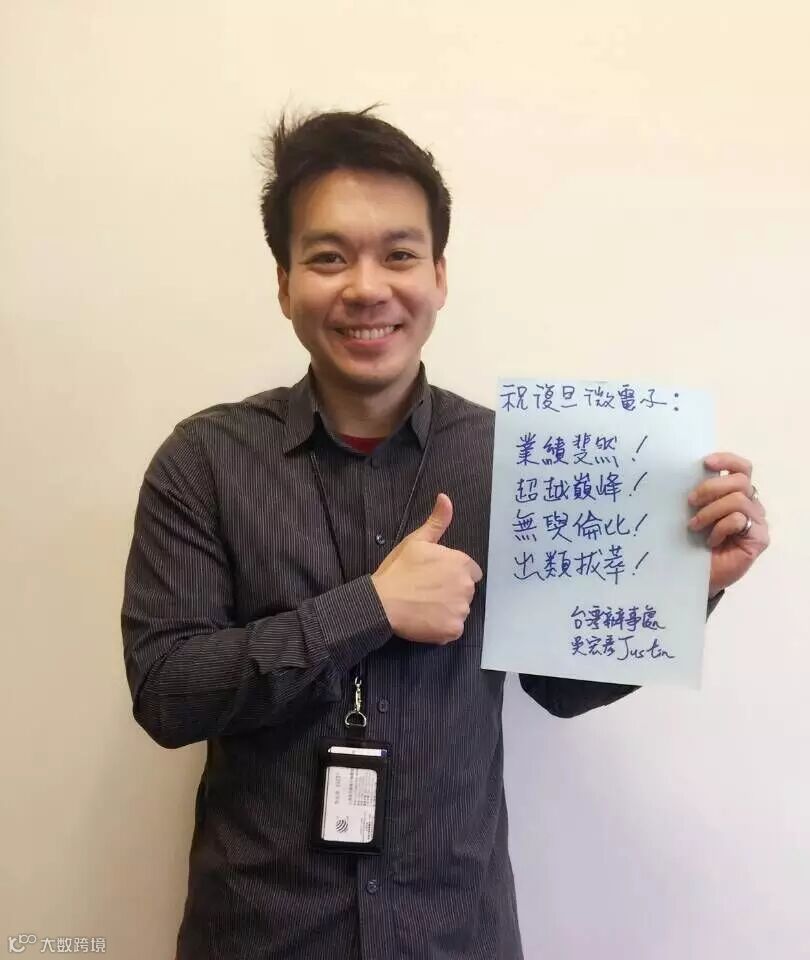 祝復旦微電子：
業績斐然！
超越巔峰！
無與倫比！
出類拔萃！
台灣辦事處
吳宏彥 Justin
大数跨境